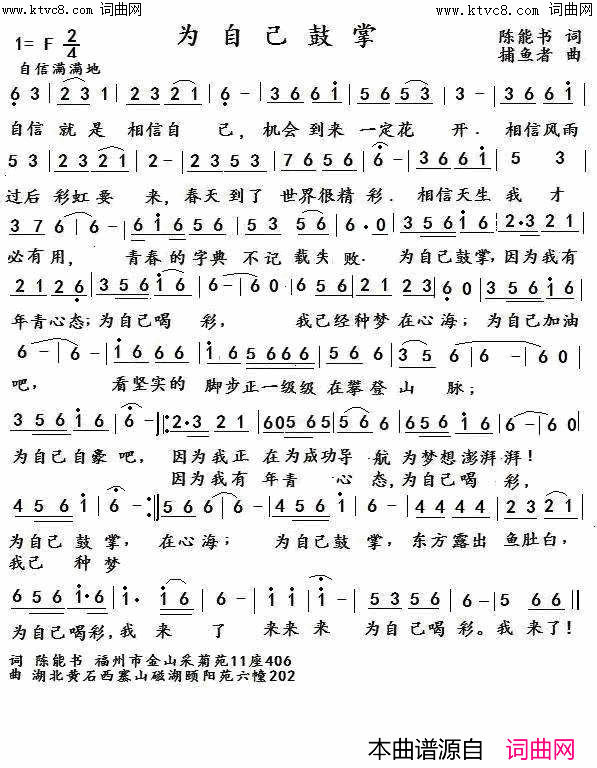 www.ktvc8.com 词曲网
www.ktvc8.com 词曲网
1= F 2/4
为自己鼓掌
陈能书 词
捕鱼者 曲
自信满满地
6 3 | 2 3 1 | 2 3 2 1 | 6 - | 3 6 6 1 | 5 6 5 3 | 3 - | 3 6 6 1 |
自信 就是 相信自 己，机会到来 一定花 开．相信风雨
5 3 | 2 3 2 1 | 2 - | 2 3 5 3 | 7 6 5 6 | 6 - | 3 6 6 1 | 5 3
过后 彩虹要 来，春天到了 世界很精 彩．相信天生 我 才
3 7 6 | 6 - | 6 1 6 5 6 | 5 3 5 6 | 6 · 0 | 3 5 6 1 6 | 2·3 2 1
必有用， 青春的字典 不记 载失 败． 为自己鼓掌，因为我有
2 1 2 6 | 3 5 6 1 6 | 6 - | 6 0 | 6 5 6 | 2 1 2 3 | 6 0 | 3 5 6 1 6
年青心态；为自己喝 彩， 我已经种梦 在心海；为自己加油
6 - | 6 - | 1 6 6 6 | 1 6 5 6 6 6 | 5 5 1 2 | 3 5 6 | 6 - | 6 0
吧， 看坚实的 脚步正一级级 在攀登 山 脉；
3 5 6 1 6 | 1 - | 2·3 2 1 | 6 0 5 5 6 5 | 5 6 6 | 6 5 6 1 6 | 6 - | 6 0
为自己自豪 吧， 因为我正 在为成功导 航 为梦想澎湃湃！
因为我有 年青 心 态，为自己喝 彩，
4 5 6 1 | 6 - | 5 6 6 6 | 6 - | 4 5 6 1 | 6 - | 4 4 4 4 | 2 3 2 1
为自己 鼓 掌， 在心海； 为自己 鼓 掌，东方露出 鱼肚白，
我已 种 梦
6 5 6 5 6 | 1·6 | 1 6 | 6 - | 1 1 | 1 - | 5 3 5 6 | 6 - | 5 6 6
为自己喝彩，我 来 了 来来 来 为自己 喝彩。我来了！
词 陈能书 福州市金山采菊苑11座406
曲 湖北黄石西塞山磁湖颐阳苑六幢202
本曲谱源自 词曲网